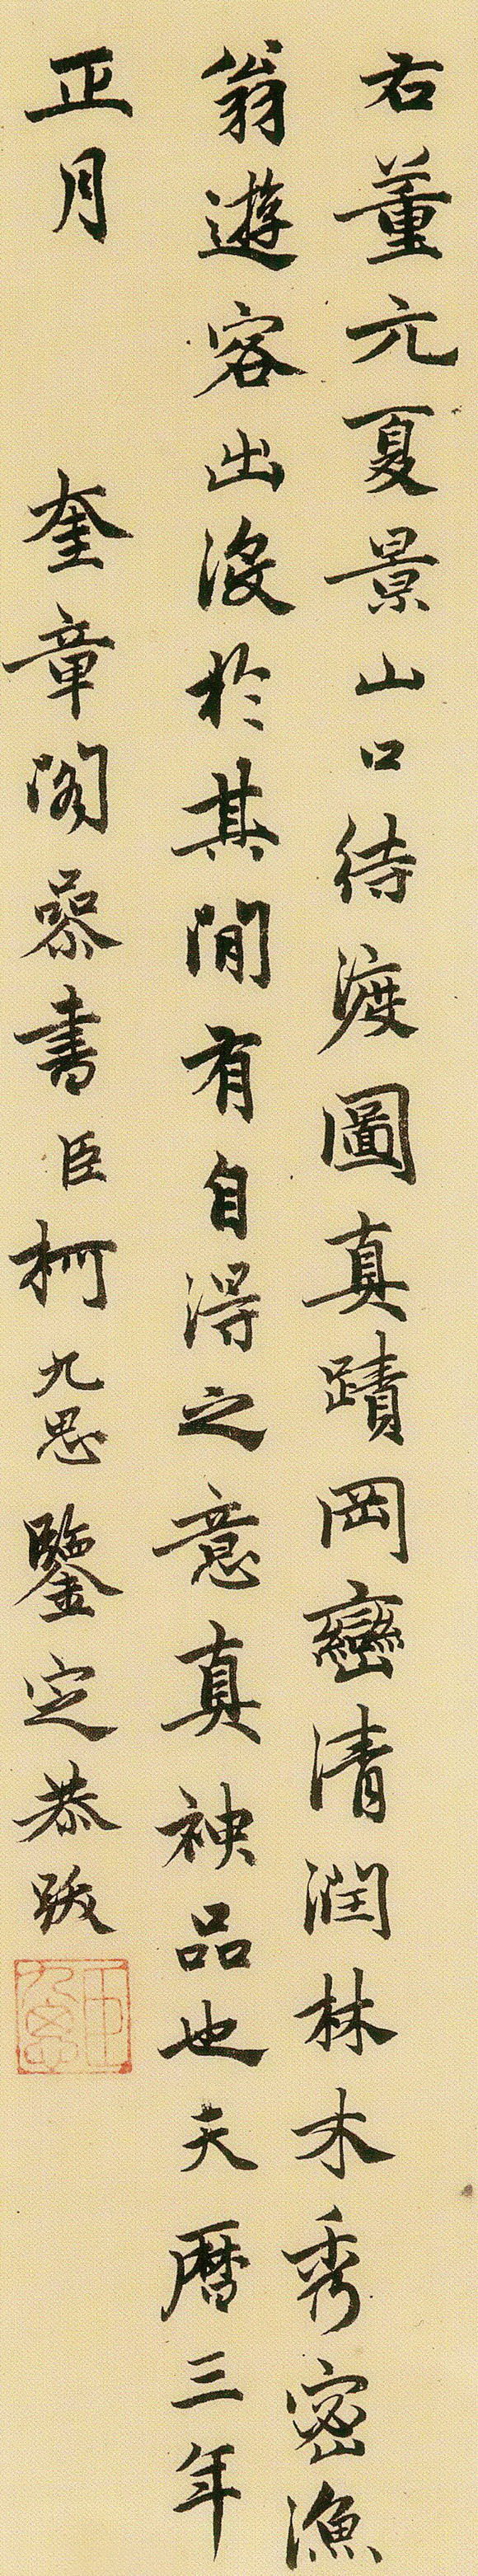 右董元夏景山口待渡圖真蹟岡巒清潤林木秀密漁
翁遊客出没於其間有自得之意真神品也天曆三年
正月　奎章閣參書臣柯九思鑒定恭跋